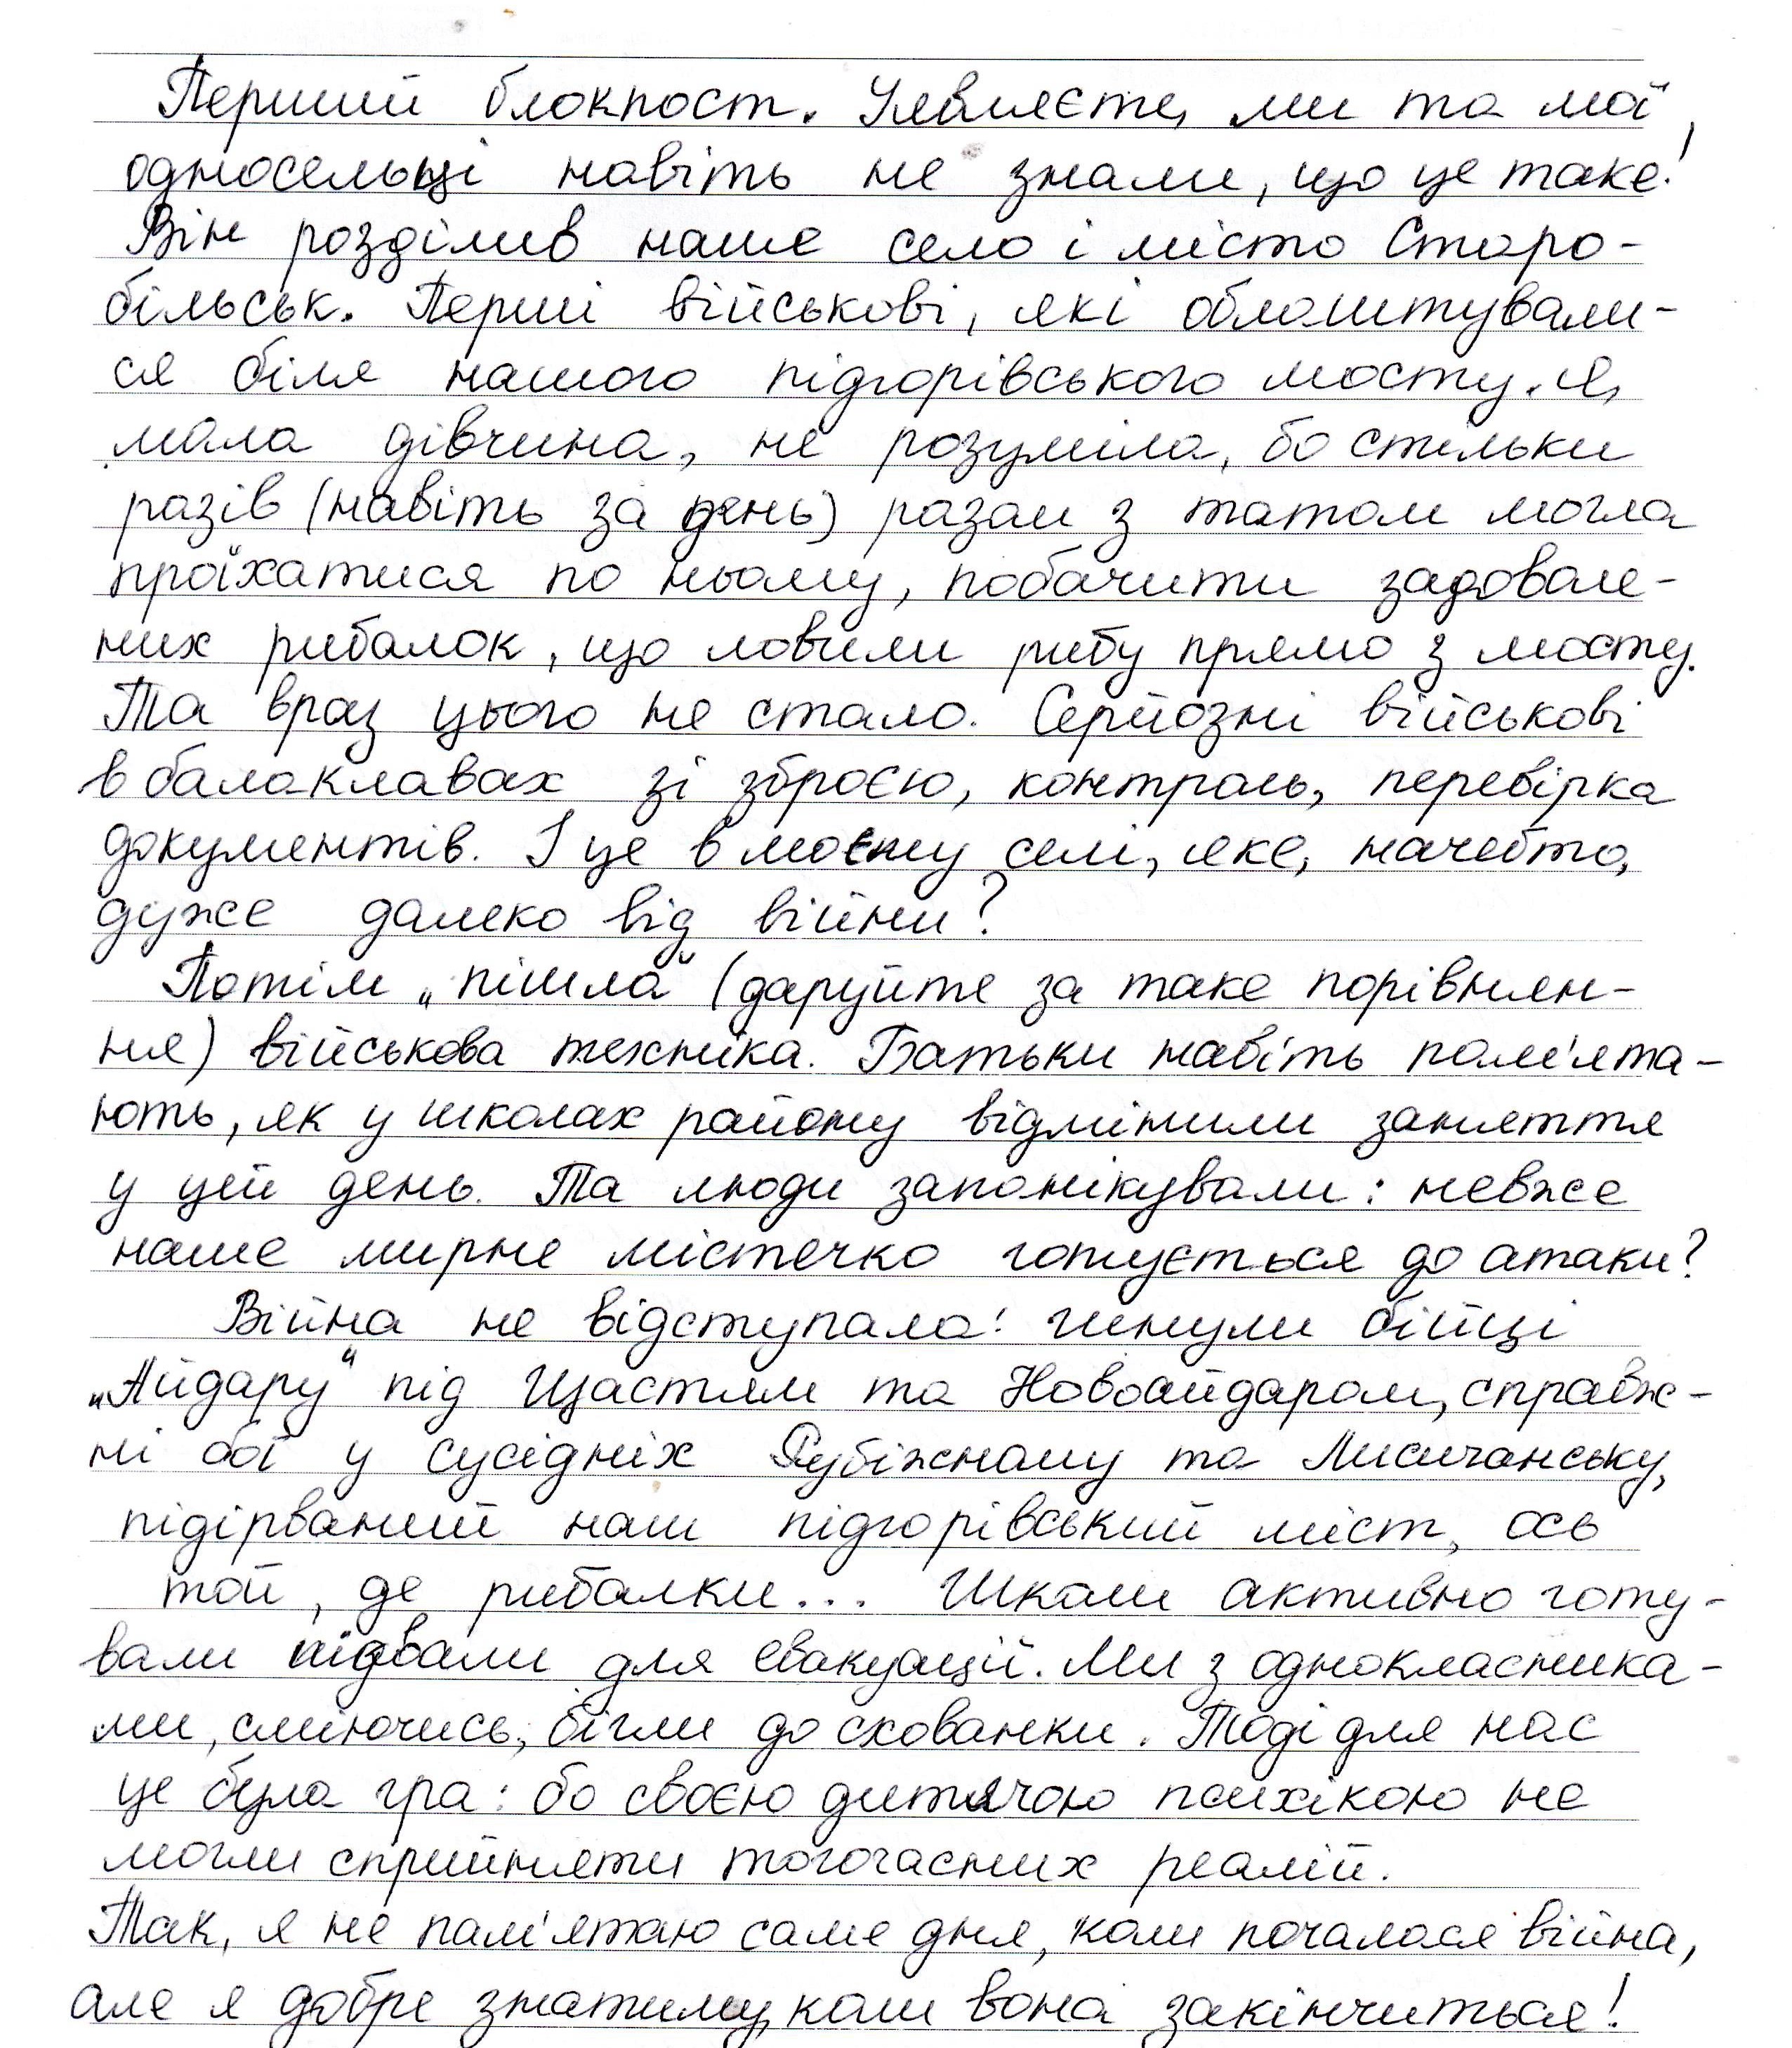 Перший блокпост. Уявляєте, ми та мої
односельці навіть не знали, що це таке!
Він розділив наше село і місто Старо-
більськ. Перші військові, які облаштували-
ся біля нашого підгорівського мосту. Я,
мала дівчина, не розуміла, бо стільки
разів (навіть за день) разом з татом могла
проїхатися по ньому, побачити задоволе-
них рибалок, що ловили рибу прямо з мосту.
Та враз цього не стало. Серйозні військові
в балаклавах зі зброєю, контроль, перевірка
документів. І це в моєму селі, яке, начебто,
дуже далеко від війни?
Потім „пішла“ (даруйте за таке порівнян-
ня) військова техніка. Батьки навіть пам'ята-
ють, як у школах району відмінили заняття
у цей день. Та люди запанікували: невже
наше мирне містечко готується до атаки?
Війна не відступала: гинули бійці
„Айдару“ під Щастям та Новоайдаром, справж-
ні бої у сусідніх Рубіжному та Лисичанську,
підірваний наш підгорівський міст, ось
той, де рибалки... Школи активно готу-
вали підвали для евакуації. Ми з однокласника-
ми, сміючись, бігли до схованки. Тоді для нас
це була гра: бо своєю дитячою психікою не
могли сприйняти тогочасних реалій.
Так, я не пам'ятаю саме дня, коли почалася війна,
але я добре знатиму, коли вона закінчиться!